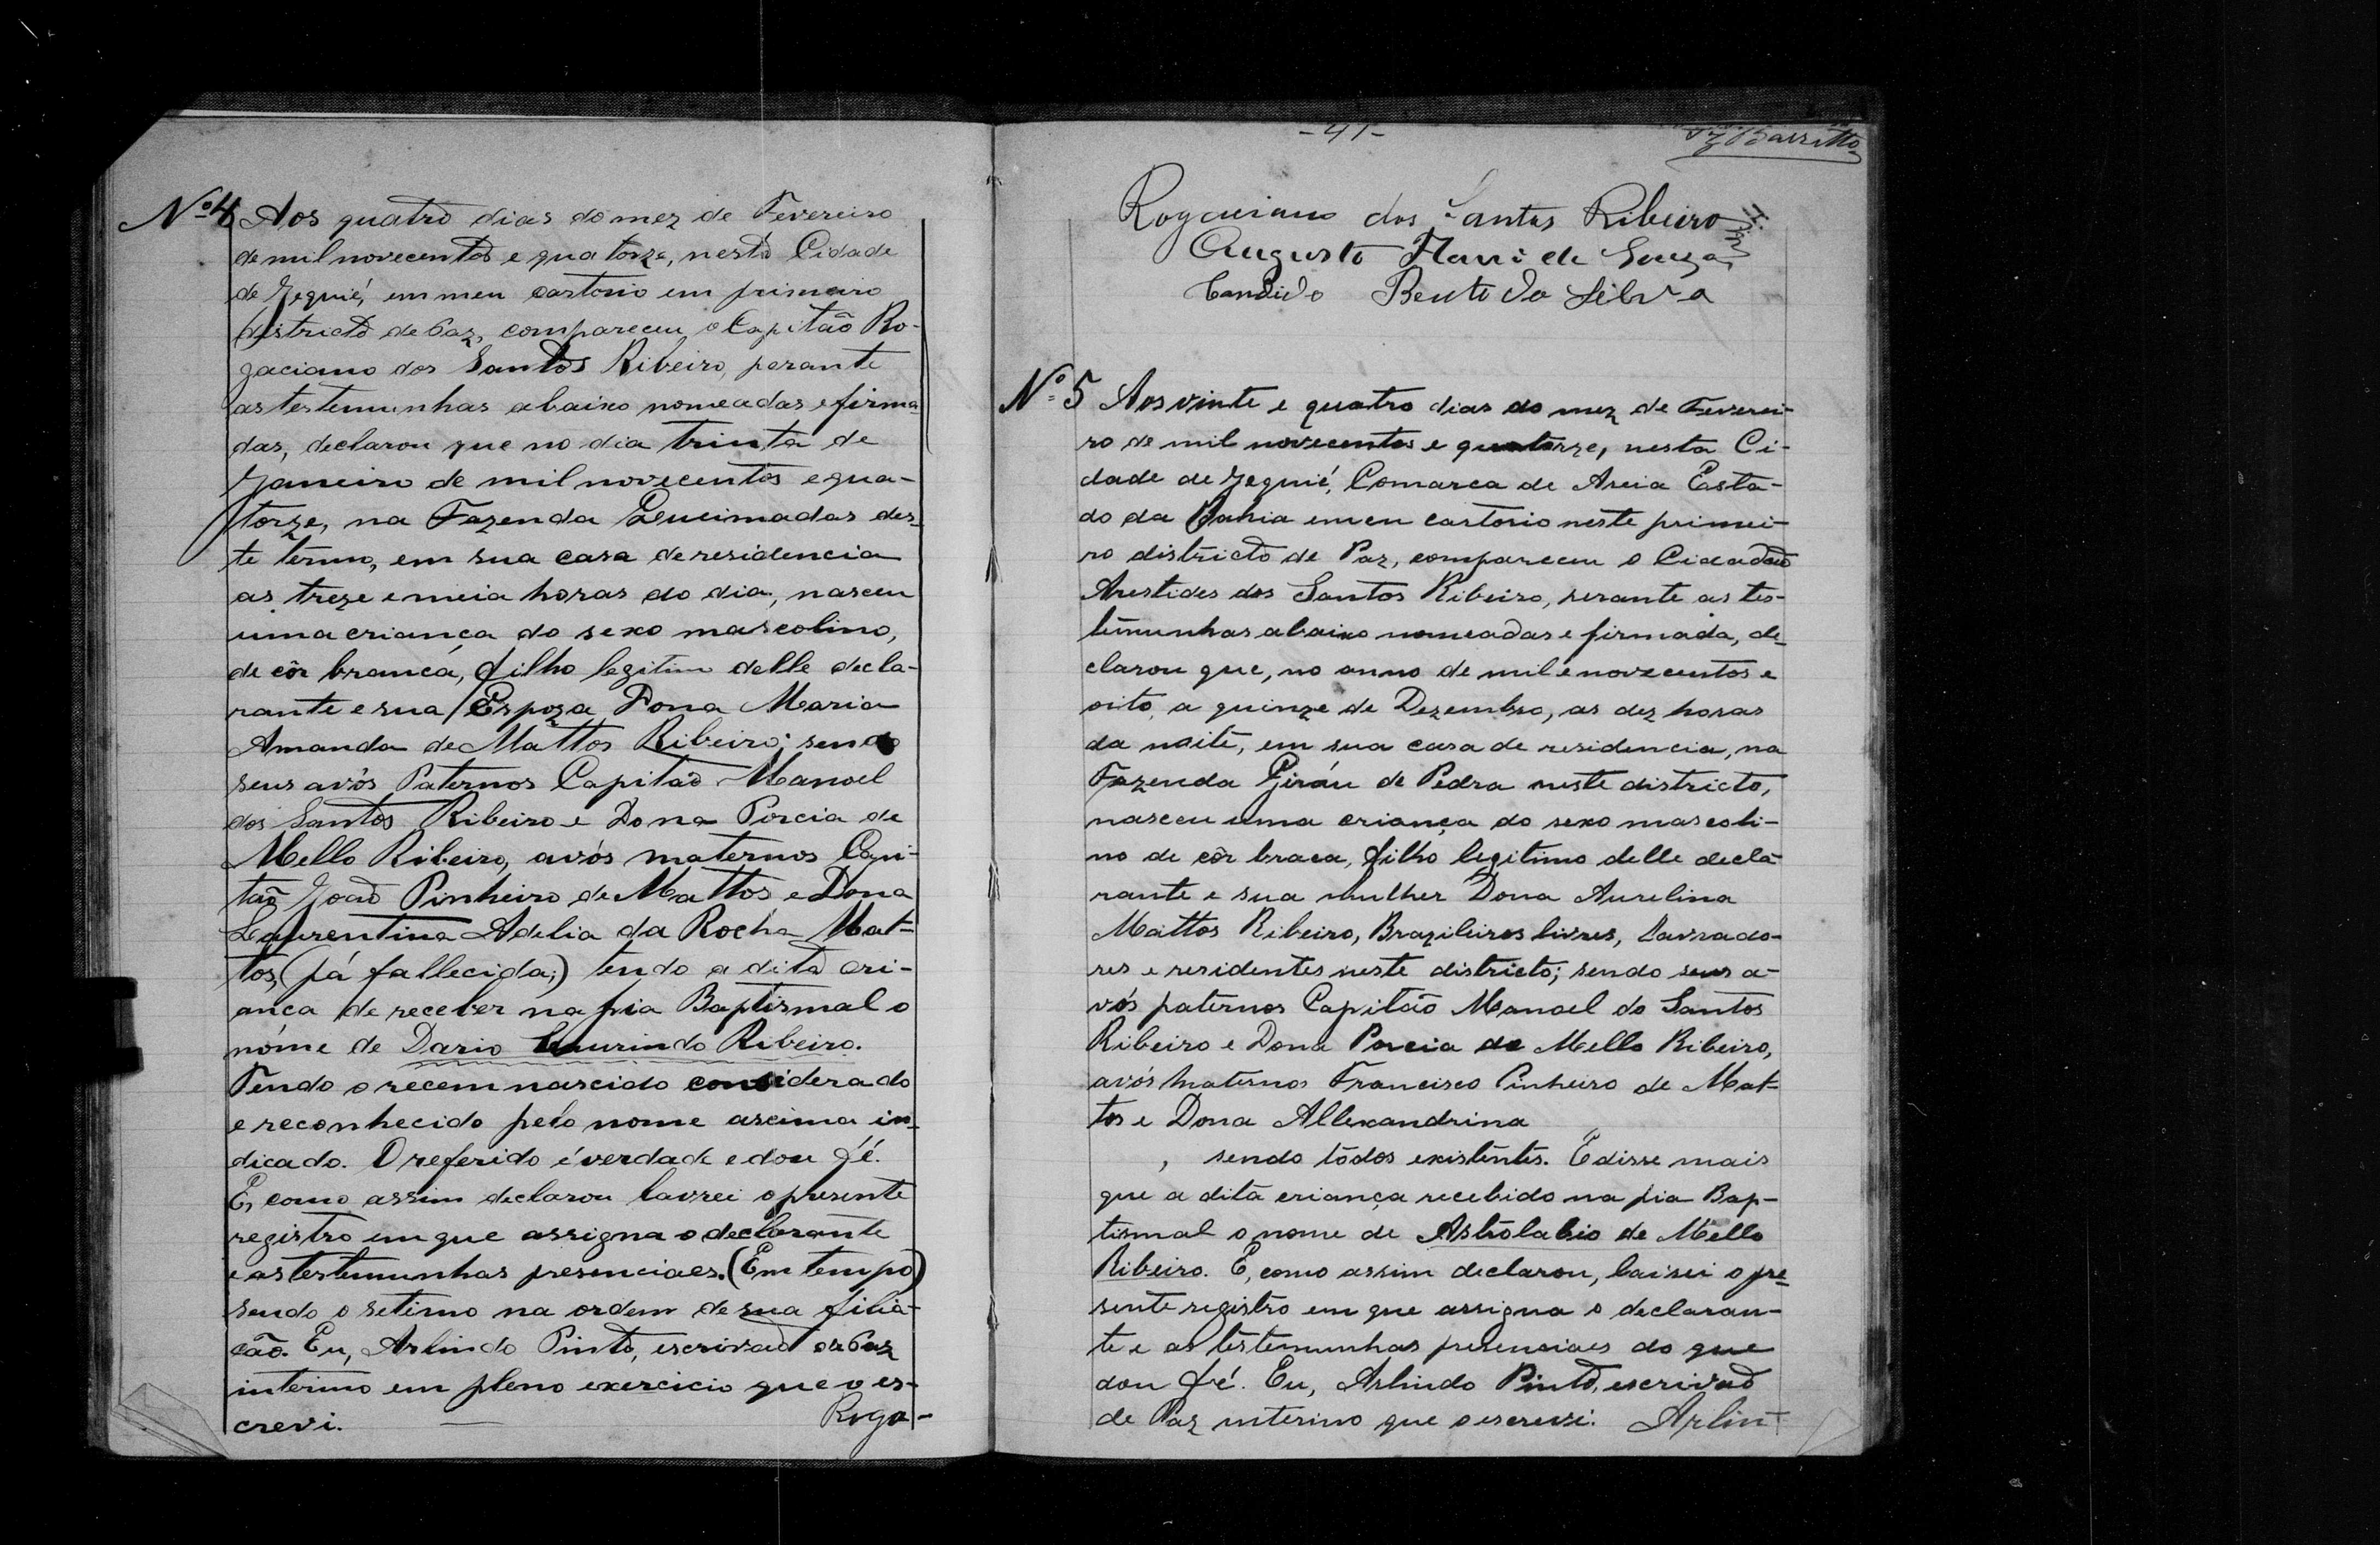 Nº 4 Aos quatro dias do mez de Fevereiro
de mil novecentos e quatorze, nesta Cidade
de Jequié, em meu cartorio em primeiro
districto de Paz, compareceu o Capitão Ro-
gaciano dos Santos Ribeiro, perante
as testemunhas abaixo nomeadas e firma-
das, declarou que no dia trinta de
Janeiro de mil novecentos e qua-
torze, na Fazenda Queimadas des-
te termo, em sua casa de residencia
as treze e meia horas do dia, nasceu
uma criança do sexo mascolino,
de côr branca, filho legitimo delle decla-
rante e sua Espoza Dona Maria
Amanda de Mattos Ribeiro; sendo
seus avós Paternos Capitão Manoel
dos Santos Ribeiro e Dona Porcia de
Mello Ribeiro, avós maternos Capi-
tão João Pinheiro de Mattos e Dona
Laurentina Adelia da Rocha Mat-
tos, (já fallecida;) tendo a dita cri-
ança de receber na pia Baptismal o
nóme de Dario Laurindo Ribeiro.
Tendo o recem nascido considerado
e reconhecido pelo nome ascima in-
dicado. O referido é verdade e dou fé.
E, como assim declarou lavrei o presente
registro em que assigna o declarante
e as testemunhas presenciaes. (Em tempo)
sendo o setimo na ordem de sua filia-
cão. Eu, Arlindo Pinto, escrivão de Paz
interino em pleno exercicio que o es-
crevi. Roga-
-41-
Barretto
Rogaciano dos Santos Ribeiro
Augusto Flavi de Souza
Candido Bento da Silva
Nº 5 Aos vinte e quatro dias do mez de Feverei-
ro de mil novecentos e quatorze, nesta Ci-
dade de Jequié, Comarca de Areia Esta-
do da Bahia em eu cartorio neste primei-
ro districto de Paz, compareceu o Cidadão
Arestides dos Santos Ribeiro, perante as tes-
temunhas abaixo nomeadas e firmada, de-
clarou que, no anno de mil e novecentos e
oito, a quinze de Dezembro, as dez horas
da noite, em sua casa de residencia, na
Fazenda Giráu de Pedra neste districto,
nasceu uma criança do sexo mascoli-
no de côr braca, filho legitimo delle decla-
rante e sua mulher Dona Aurelina
Mattos Ribeiro, Brazileiros livres, Lavrado-
res e residentes neste districto; sendo seus a-
vós paternos Capitão Manoel do Santos
Ribeiro e Dona Porcia de Mello Ribeiro,
avós maternos Francisco Pinheiro de Mat-
tos e Dona Allexandrina
, sendo tôdos existentes. E disse mais
que a dita criança recebido na pia Bap-
tismal o nome de Astrolabio de Mello
Ribeiro. E, como assim declarou, laisei o pre-
sente registro em que assigna o declaran-
te e as testemunhas presenciaes do que
dou fé. Eu, Arlindo Pinto, escrivão
de Paz interino que o escrevi. Arlin-